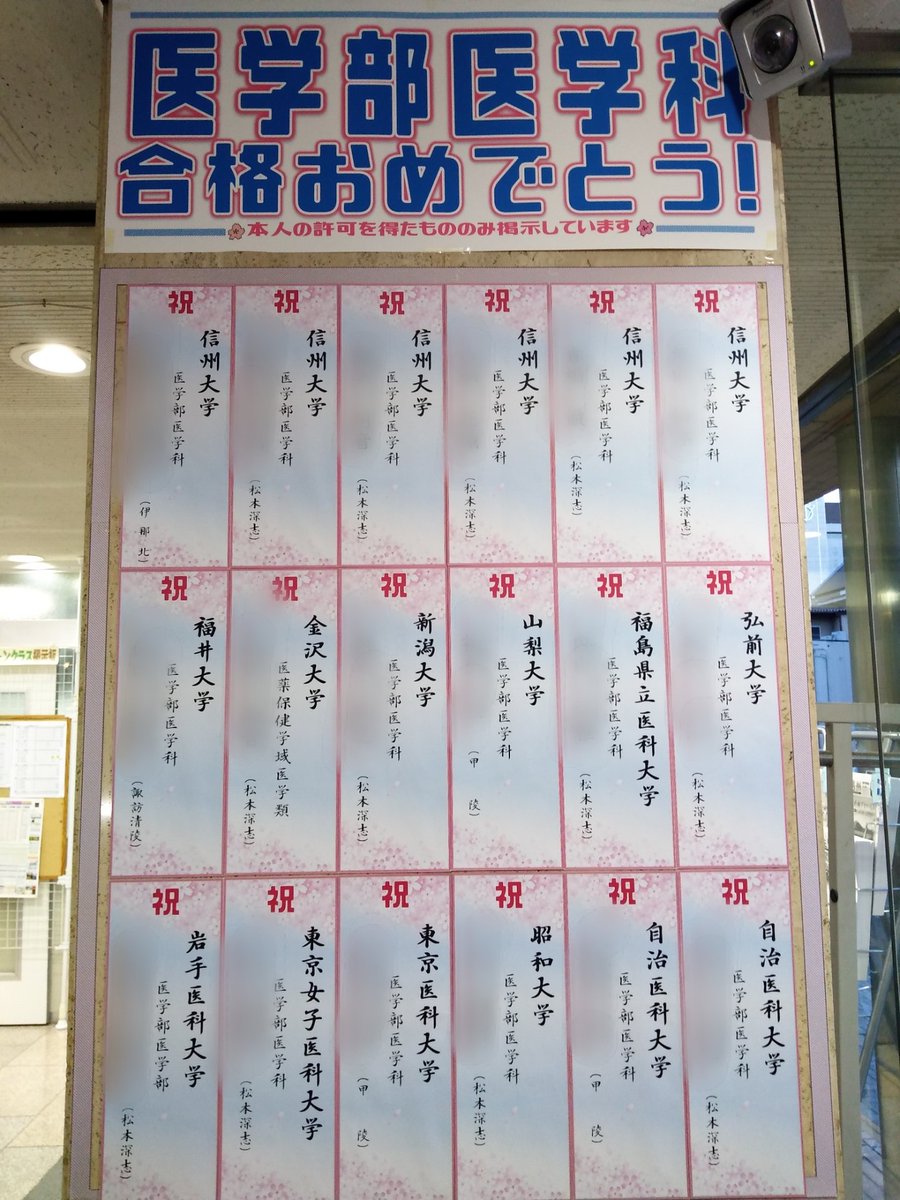 医学部医学科
合格おめでとう!
本人の許可を得たもののみ掲示しています
祝
信州大学
医学部医学科
(松本深志)
祝
信州大学
医学部医学科
(松本深志)
祝
信州大学
医学部医学科
(松本深志)
祝
信州大学
医学部医学科
(松本深志)
祝
信州大学
医学部医学科
(松本深志)
祝
信州大学
医学部医学科
(伊那北)
祝
弘前大学
医学部医学科
(松本深志)
祝
福島県立医科大学
医学部医学科
(松本深志)
祝
山梨大学
医学部医学科
(甲 陵)
祝
新潟大学
医学部医学科
(松本深志)
祝
金沢大学
医薬保健学域医学類
(松本深志)
祝
福井大学
医学部医学科
(諏訪清陵)
祝
自治医科大学
医学部医学科
(松本深志)
祝
自治医科大学
医学部医学科
(甲 陵)
祝
昭和大学
医学部医学科
(松本深志)
祝
東京医科大学
医学部医学科
(甲 陵)
祝
東京女子医科大学
医学部医学科
(松本深志)
祝
岩手医科大学
医学部医学部
(松本深志)